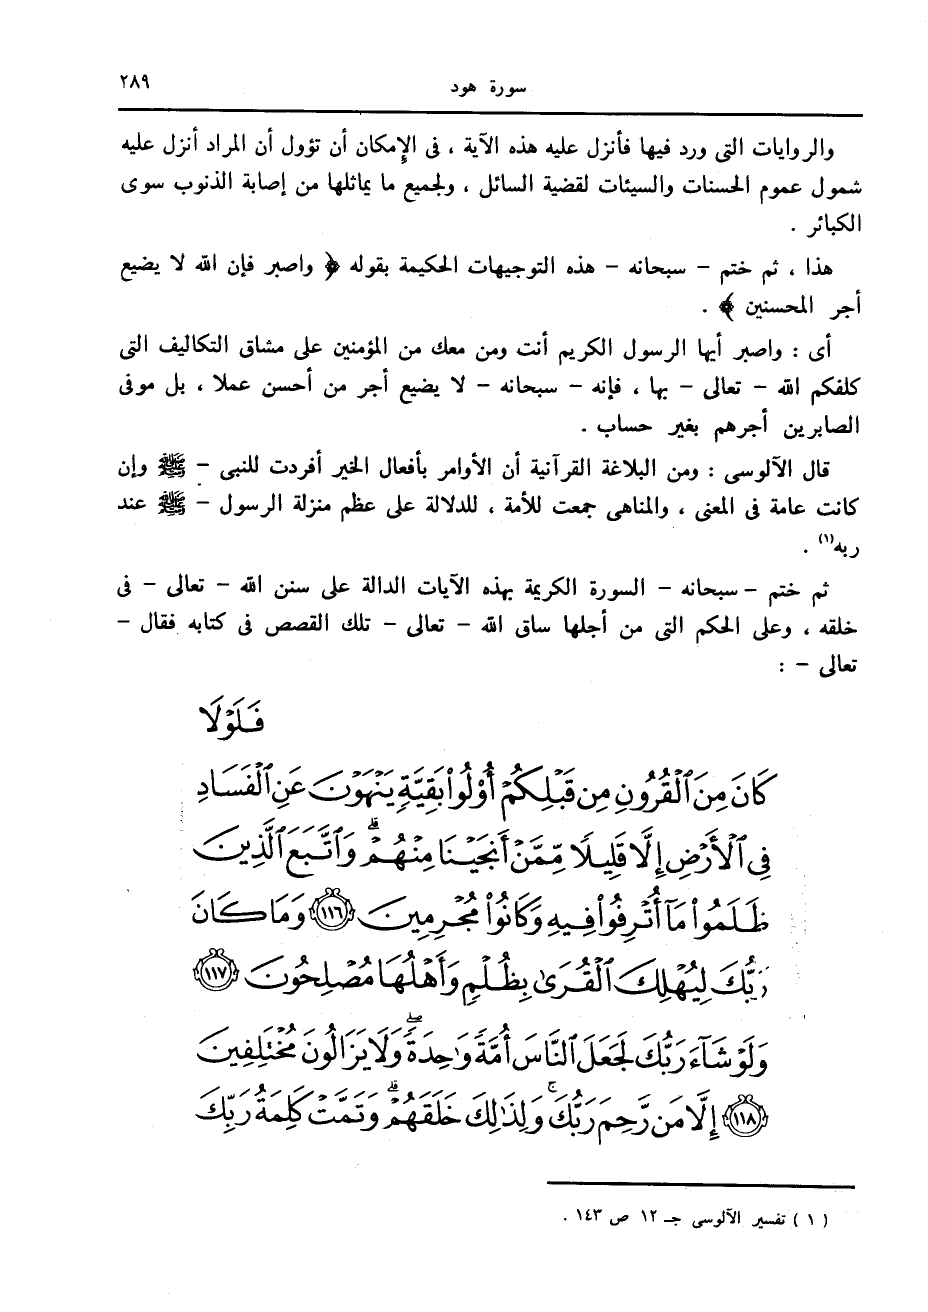 سورة هود
٢٨٩
والروايات التى ورد فيها فأنزل عليه هذه الآية ، فى الإمكان أن تؤول أن المراد أنزل عليه
شمول عموم الحسنات والسيئات لقضية السائل ، ولجميع ما يماثلها من إصابة الذنوب سوى
الكبائر .
هذا ، ثم ختم – سبحانه – هذه التوجيهات الحكيمة بقوله ﴿ واصبر فإن الله لا يضيع
أجر المحسنين ﴾ .
أى : واصبر أيها الرسول الكريم أنت ومن معك من المؤمنين على مشاق التكاليف التى
كلفكم الله – تعالى – بها ، فإنه – سبحانه – لا يضيع أجر من أحسن عملا ، بل موفى
الصابرين أجرهم بغير حساب .
قال الآلوسى : ومن البلاغة القرآنية أن الأوامر بأفعال الخير أفردت للنبى – ﷺ وإن
كانت عامة فى المعنى ، والمناهى جمعت للأمة ، للدلالة على عظم منزلة الرسول – ﷺ عند
ربه(١) .
ثم ختم – سبحانه – السورة الكريمة بهذه الآيات الدالة على سنن الله – تعالى – فى
خلقه ، وعلى الحكم التى من أجلها ساق الله – تعالى – تلك القصص فى كتابه فقال –
تعالى – :
فَلَوْلَا
كَانَ مِنَ ٱلْقُرُونِ مِن قَبْلِكُمْ أُو۟لُوا۟ بَقِيَّةٍ يَنْهَوْنَ عَنِ ٱلْفَسَادِ
فِى ٱلْأَرْضِ إِلَّا قَلِيلًا مِّمَّنْ أَنجَيْنَا مِنْهُمْ ۗ وَٱتَّبَعَ ٱلَّذِينَ
ظَلَمُوا۟ مَآ أُتْرِفُوا۟ فِيهِ وَكَانُوا۟ مُجْرِمِينَ ١١٦ وَمَا كَانَ
رَبُّكَ لِيُهْلِكَ ٱلْقُرَىٰ بِظُلْمٍ وَأَهْلُهَا مُصْلِحُونَ ١١٧
وَلَوْ شَآءَ رَبُّكَ لَجَعَلَ ٱلنَّاسَ أُمَّةً وَٰحِدَةً ۖ وَلَا يَزَالُونَ مُخْتَلِفِينَ
١١٨ إِلَّا مَن رَّحِمَ رَبُّكَ ۚ وَلِذَٰلِكَ خَلَقَهُمْ ۗ وَتَمَّتْ كَلِمَةُ رَبِّكَ
( ١ ) تفسير الآلوسى جـ ١٢ ص ١٤٣ .